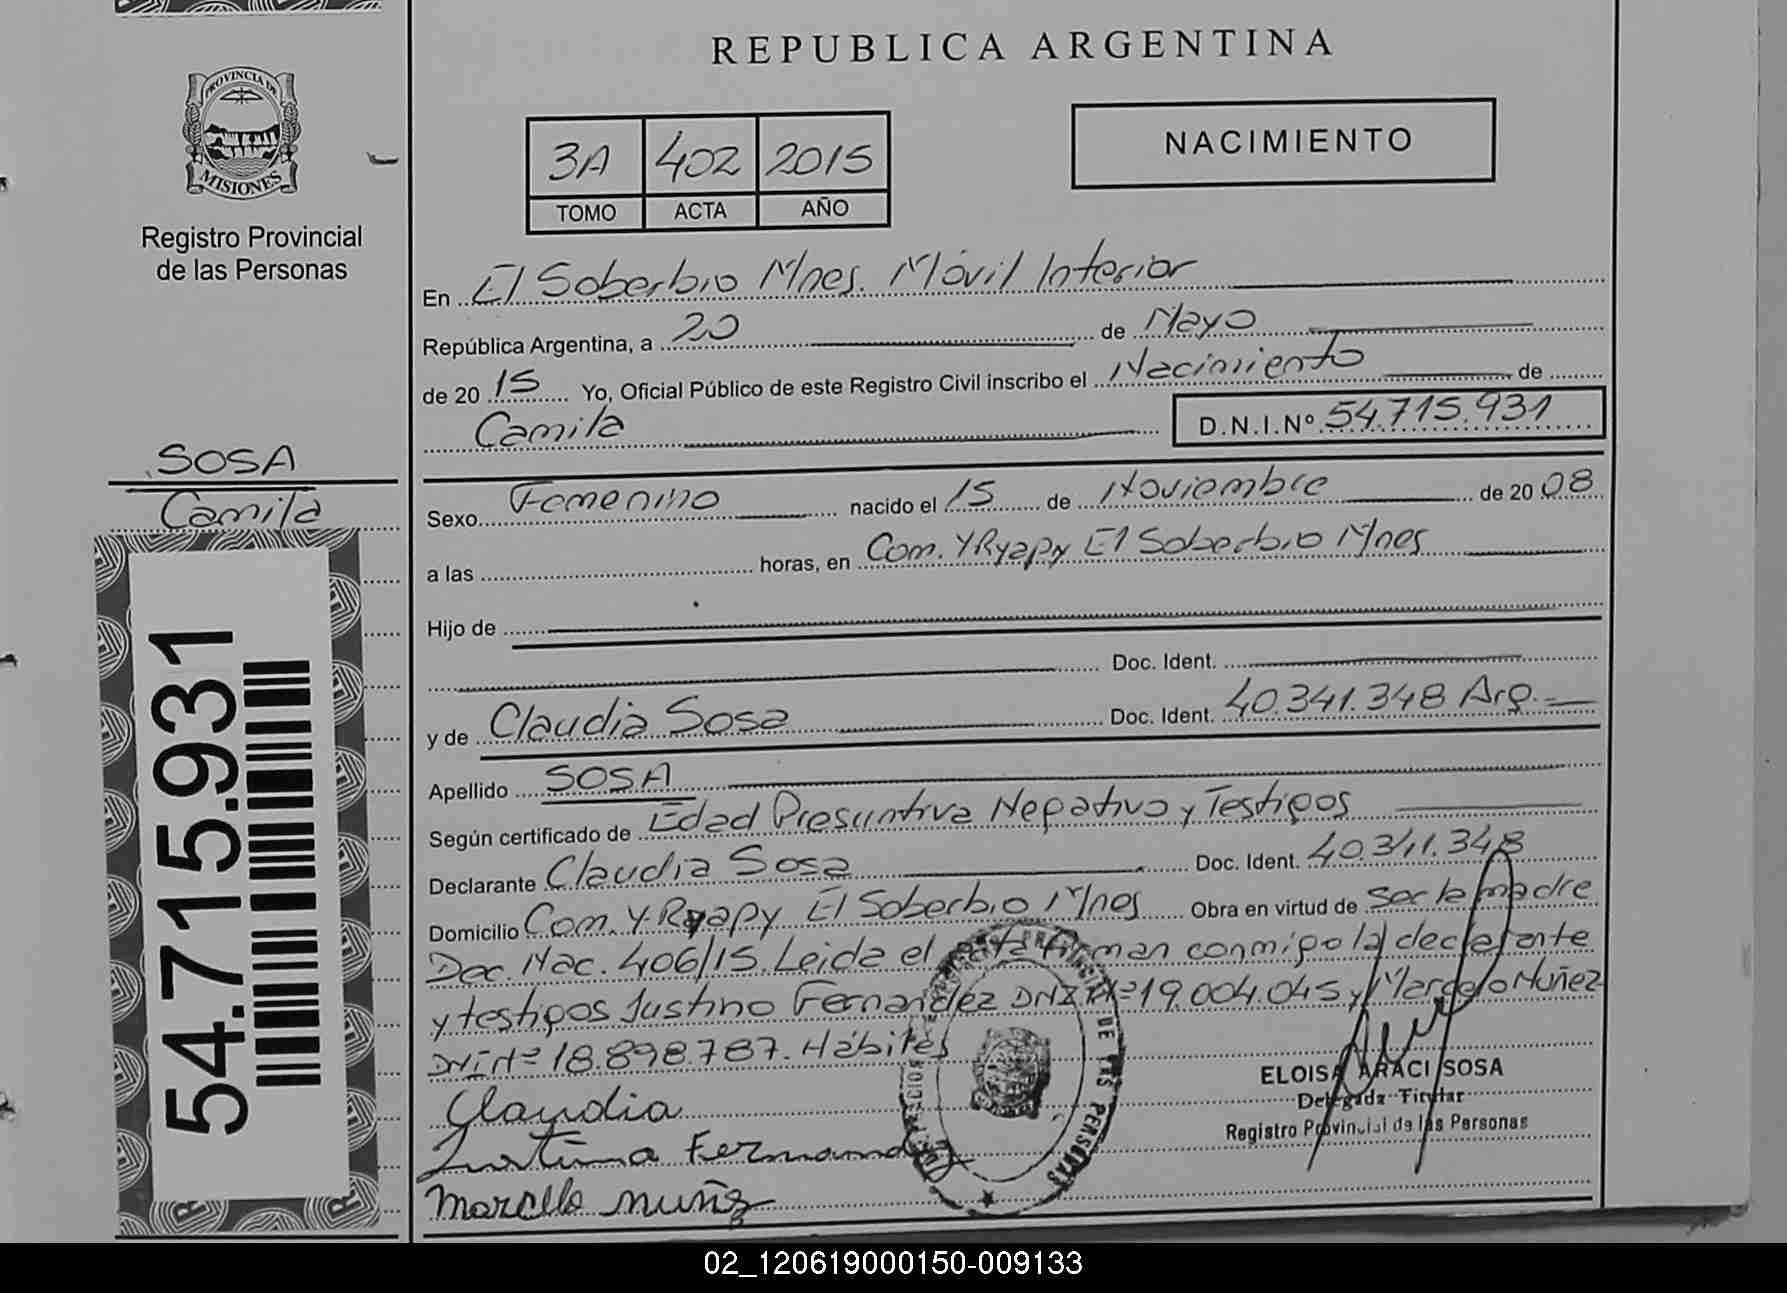 REPUBLICA ARGENTINA
PROVINCIA DE
MISIONES
Registro Provincial
de las Personas
3A 402 2015
TOMO ACTA AÑO
NACIMIENTO
En El Soberbio Mnes. Móvil Interior
República Argentina, a 20 de Mayo
de 2015 Yo, Oficial Público de este Registro Civil inscribo el Nacimiento de
Camila D.N.I.Nº 54.715.931
SOSA
Camila
54.715.931
Sexo Femenino nacido el 15 de Noviembre de 2008
a las horas, en Com. YRyapy El Soberbio Mnes
Hijo de
Doc. Ident.
y de Claudia Sosa Doc. Ident. 40.341.348 Arg.
Apellido SOSA
Según certificado de Edad Presuntiva Negativo y Testigos
Declarante Claudia Sosa Doc. Ident. 40.341.348
Domicilio Com. Y-Ryapy El Soberbio Mnes Obra en virtud de ser la madre
Doc. Nac. 406/15. Leida el acta firman conmigo la declarante
y testigos Justino Fernandez DNI Nº 19.004.045 y Marcelo Nuñez
DNI Nº 18.898.787. Hábiles
Claudia
Justino Fernandez
Marcelo nuñz
DE LAS PERSONAS
ELOISA ARACI SOSA
Delegada Titular
Registro Provincial de las Personas
02_120619000150-009133